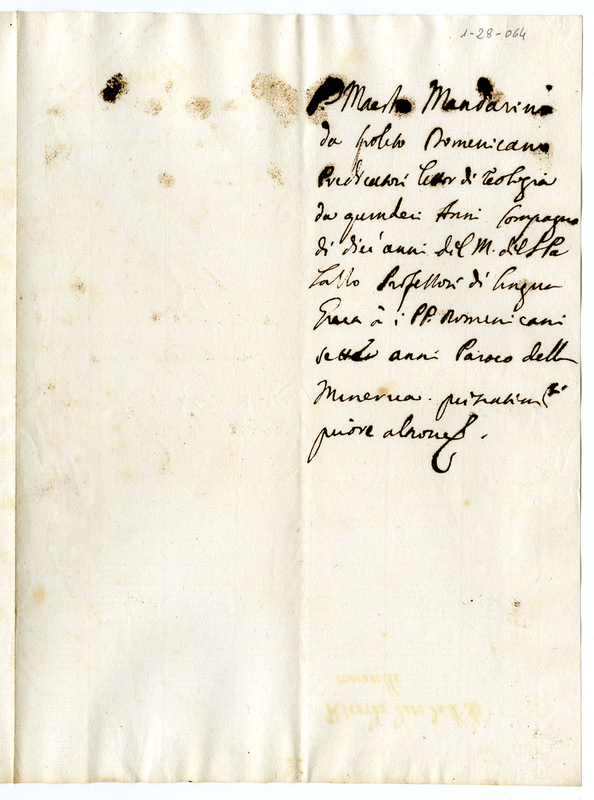 1-28-064
P. Maestro Mandarini
da Spoleto Domenicano
Predicatori lettor di Teologia
da quindeci Anni Compagno
di dieci anni del M. del S. Pa
lazzo Professore di lingua
Greca à i PP. Domenicani
anni Paroco della
Minerva.
priore altrove